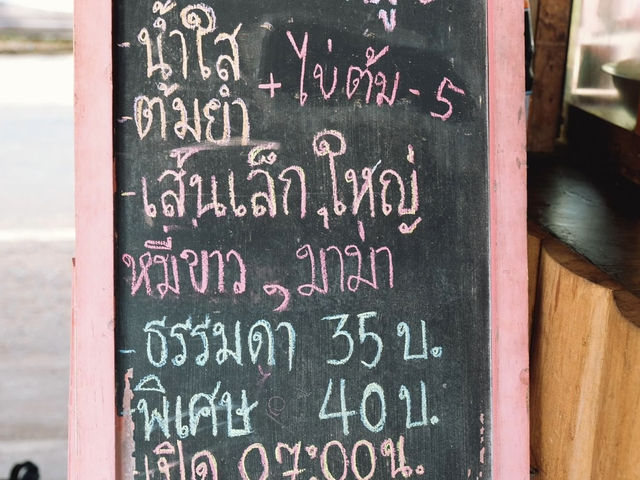 -น้ำใส
+ ไข่ต้ม - 5
-ต้มยำ
-เส้นเล็ก,ใหญ่
หมี่ขาว , มาม่า
-ธรรมดา 35 บ.
-พิเศษ 40 บ.
-เปิด 07:00 น.